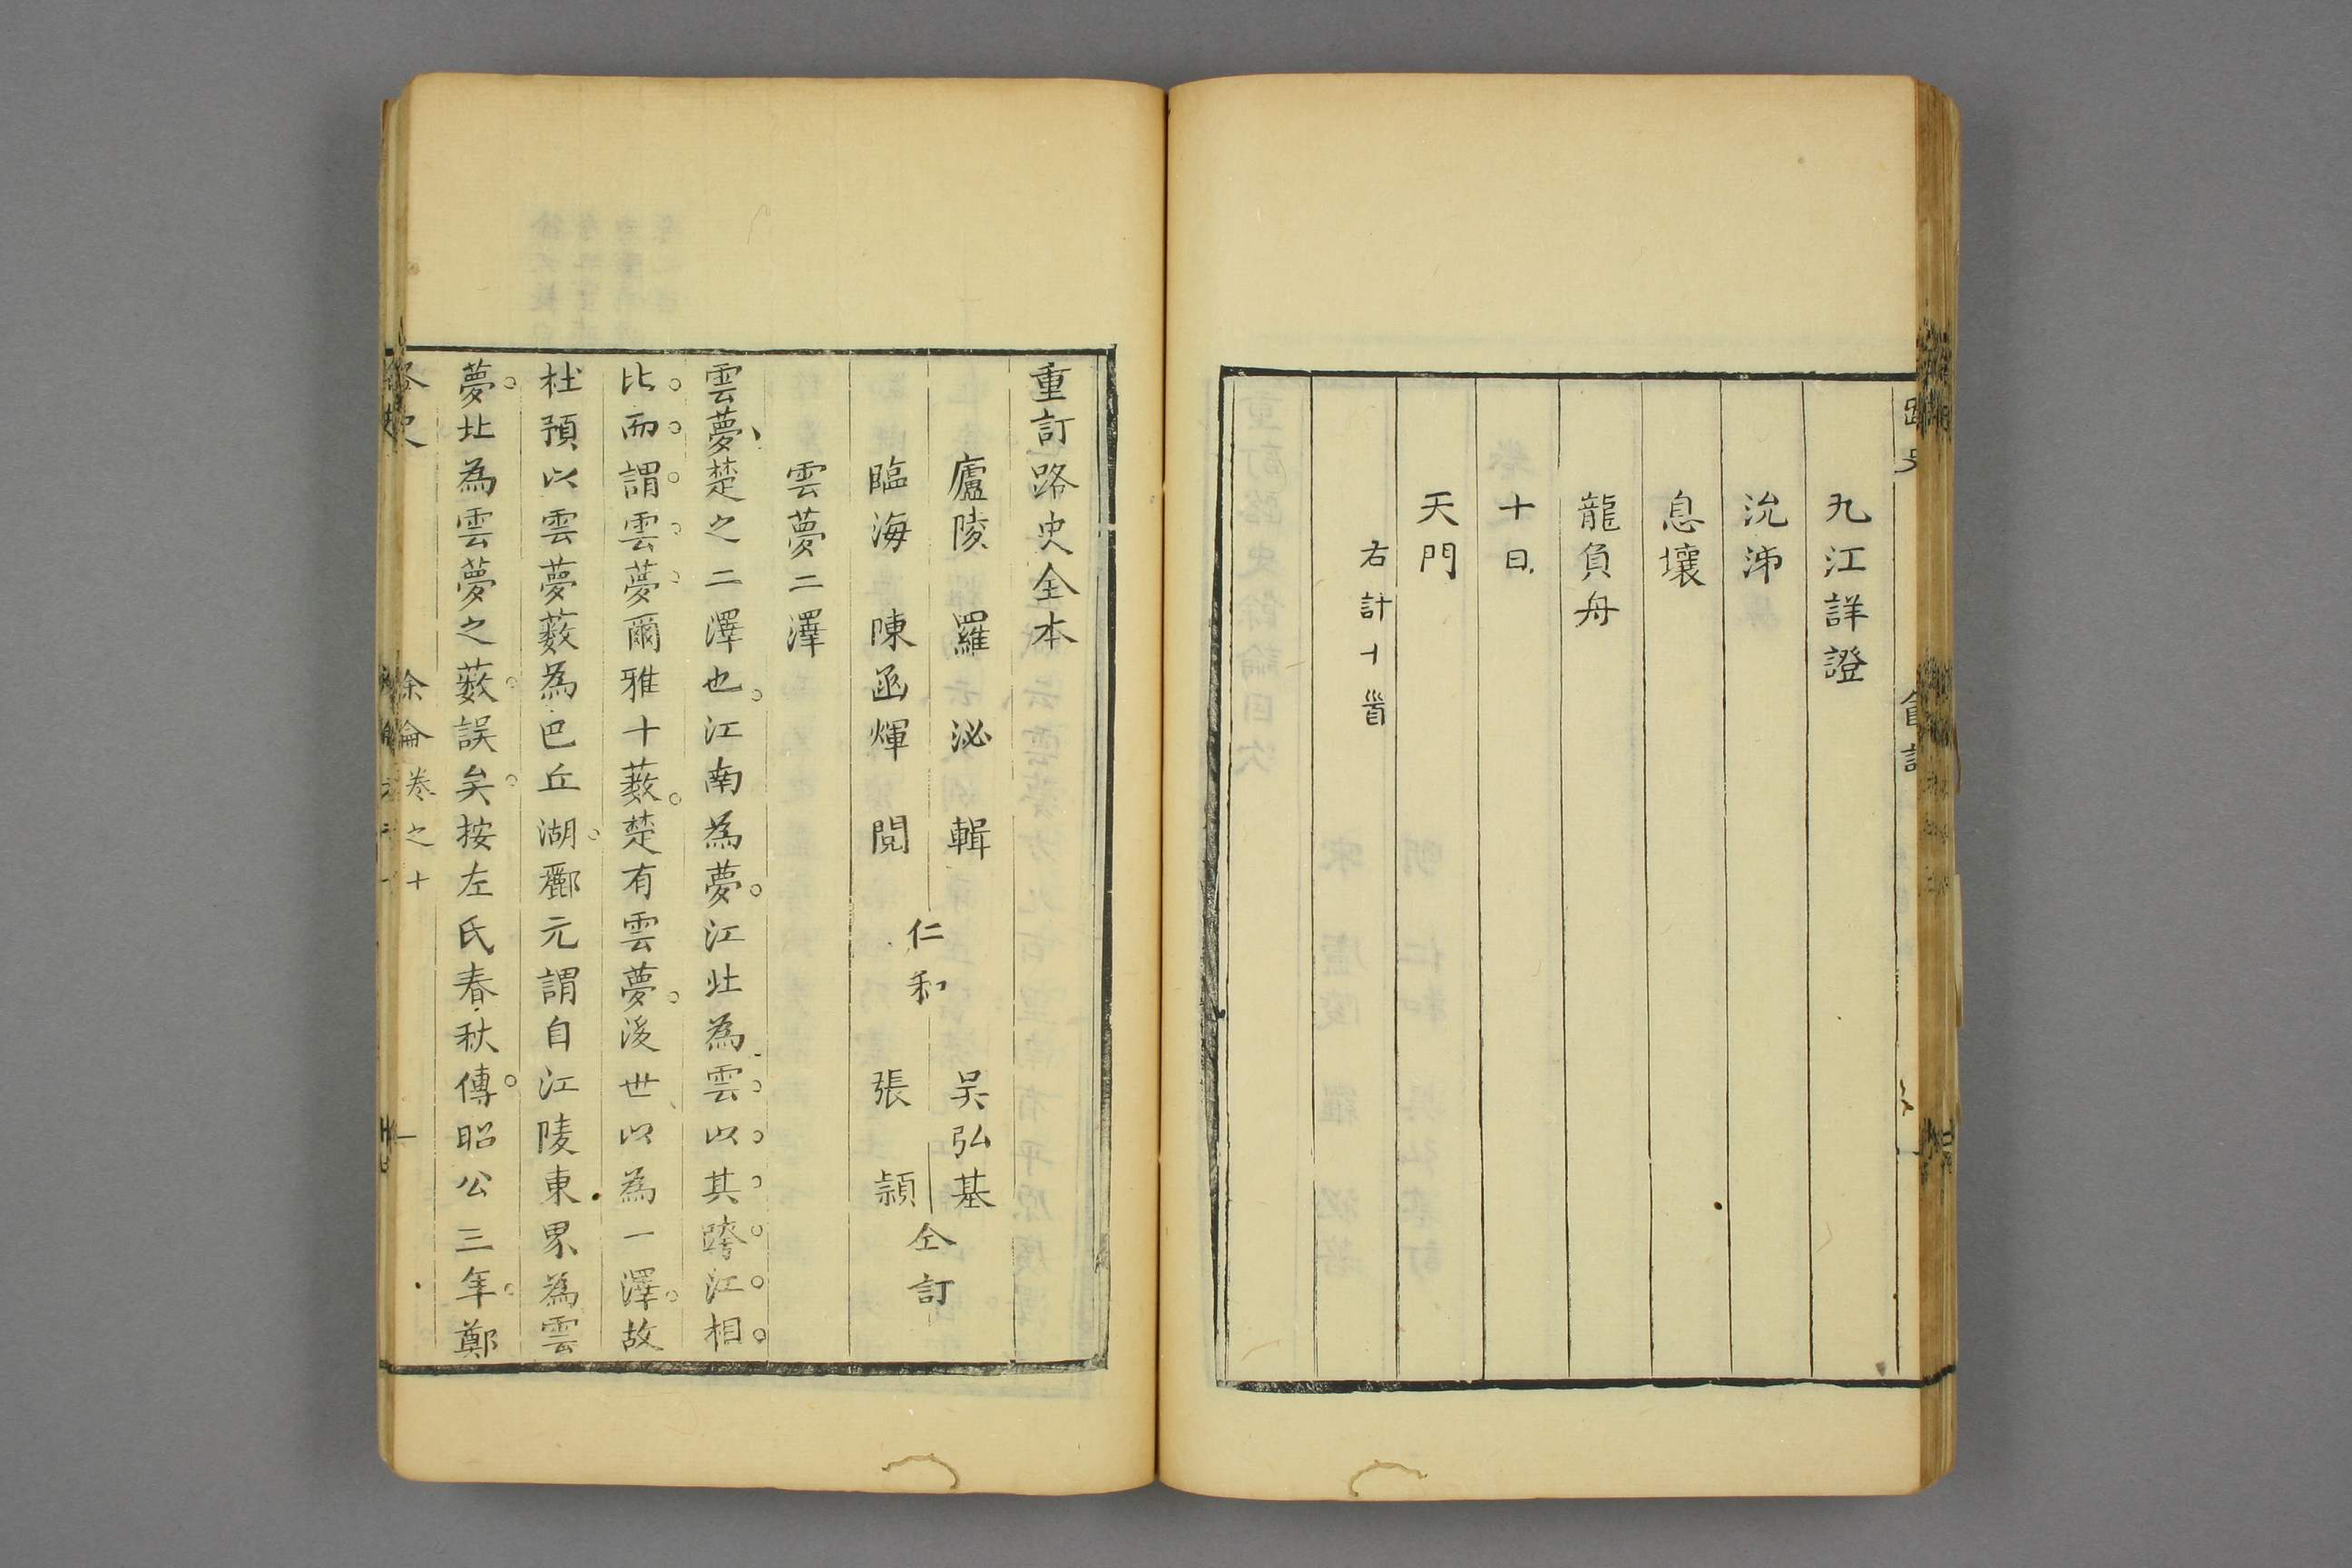 九江詳證
沇沛
息壤
龍負舟
十日
天門
右計十首
重訂路史全本
廬陵 羅泌輯
臨海 陳函煇閱
仁和
吳弘基
張頴
仝訂
雲夢二澤
雲夢楚之二澤也。江南為夢。江北為雲。以其跨江相
比而謂雲夢爾雅十藪。楚有雲夢。後世以為一澤。故
杜預以雲夢藪為巴丘湖。酈元謂自江陵東界為雲
夢。北為雲夢之藪。誤矣。按左氏春秋傳。昭公三年。鄭
卷之十
一